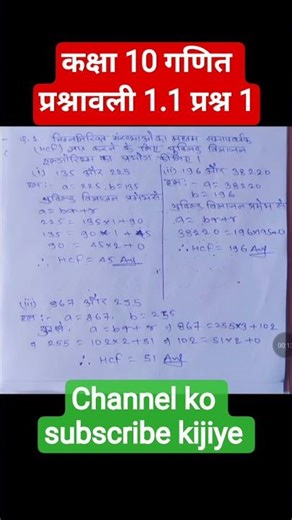 कक्षा 10 गणित
प्रश्नावली 1.1 प्रश्न 1
(HCF) ज्ञात करने के लिए यूक्लिड विभाजन
(i) 135 और 225
(ii) 196 और 38220
हल:- a = 225, b = 135
हल:- a = 38220
b = 196
a = bq+r
225 = 135×1+90
135 = 90×1+45
90 = 45×2+0
∴ HCF = 45 Ans
a = bq+r
38220 = 196×195+0
∴ HCF = 196 Ans
(iii) 867 और 255
हल:- a = 867, b = 255
a = bq+r
867 = 255×3+102
255 = 102×2+51
102 = 51×2+0
∴ HCF = 51 Ans
Channel ko
subscribe kijiye